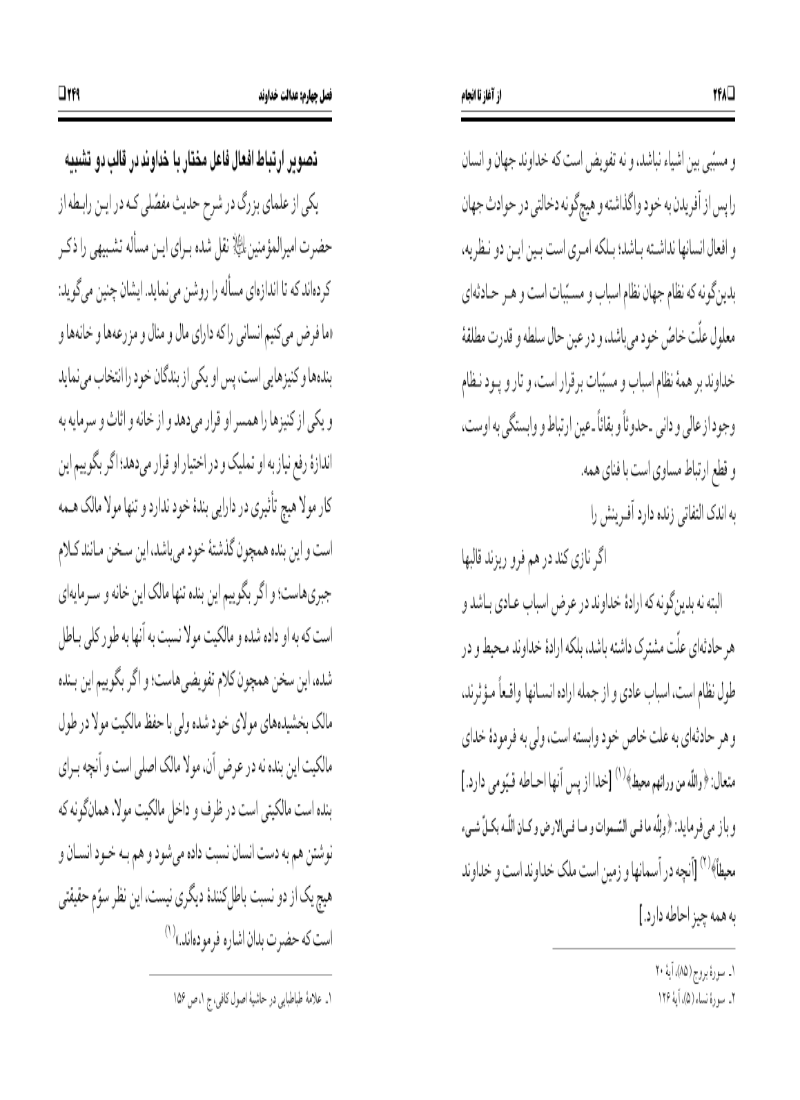 ❏ ۲۴۸
از آغاز تا انجام
و مسبّبی بین اشیاء نباشد، و نه تفویض است که خداوند جهان و انسان
را پس از آفریدن به خود واگذاشته و هیچ‌گونه دخالتی در حوادث جهان
و افعال انسانها نداشته باشد؛ بلکه امری است بین این دو نظریه،
بدین‌گونه که نظام جهان نظام اسباب و مسبّبات است و هر حادثه‌ای
معلول علّت خاصّ خود می‌باشد، و در عین حال سلطه و قدرت مطلقهٔ
خداوند بر همهٔ نظام اسباب و مسبّبات برقرار است، و تار و پود نظام
وجود از عالی و دانی ـ حدوثاً و بقائاً ـ عین ارتباط و وابستگی به اوست،
و قطع ارتباط مساوی است با فنای همه.
به اندک التفاتی زنده دارد آفرینش را
اگر نازی کند در هم فرو ریزند قالبها
البته نه بدین‌گونه که ارادهٔ خداوند در عرض اسباب عادی باشد و
هر حادثه‌ای علّت مشترک داشته باشد، بلکه ارادهٔ خداوند محیط و در
طول نظام است، اسباب عادی و از جمله اراده انسانها واقعاً مؤثرند،
و هر حادثه‌ای به علت خاص خود وابسته است، ولی به فرمودهٔ خدای
متعال: ﴿والله من ورائهم محیط﴾(۱) [خدا از پس آنها احاطه قیّومی دارد.]
و باز می‌فرماید: ﴿ولله ما فی السّموات و ما فی‌الارض و کان اللّه بکلّ شیء
محیطاً﴾(۲) [آنچه در آسمانها و زمین است ملک خداوند است و خداوند
به همه چیز احاطه دارد.]
۱ـ سورهٔ بروج (۸۵)، آیهٔ ۲۰
۲ـ سورهٔ نساء (۵)، آیهٔ ۱۲۶
فصل چهارم: عدالت خداوند
۲۴۹ ❏
تصویر ارتباط افعال فاعل مختار با خداوند در قالب دو تشبیه
یکی از علمای بزرگ در شرح حدیث مفصّلی که در این رابطه از
حضرت امیرالمؤمنین نقل شده برای این مسأله تشبیهی را ذکر
کرده‌اند که تا اندازه‌ای مسأله را روشن می‌نماید. ایشان چنین می‌گوید:
«ما فرض می‌کنیم انسانی را که دارای مال و منال و مزرعه‌ها و خانه‌ها و
بنده‌ها و کنیزهایی است، پس او یکی از بندگان خود را انتخاب می‌نماید
و یکی از کنیزها را همسر او قرار می‌دهد و از خانه و اثاث و سرمایه به
اندازهٔ رفع نیاز به او تملیک و در اختیار او قرار می‌دهد؛ اگر بگوییم این
کار مولا هیچ تأثیری در دارایی بندهٔ خود ندارد و تنها مولا مالک همه
است و این بنده همچون گذشتهٔ خود می‌باشد، این سخن مانند کلام
جبری‌هاست؛ و اگر بگوییم این بنده تنها مالک این خانه و سرمایه‌ای
است که به او داده شده و مالکیت مولا نسبت به آنها به طور کلی باطل
شده، این سخن همچون کلام تفویضی‌هاست؛ و اگر بگوییم این بنده
مالک بخشیده‌های مولای خود شده ولی با حفظ مالکیت مولا در طول
مالکیت این بنده نه در عرض آن، مولا مالک اصلی است و آنچه برای
بنده است مالکیتی است در ظرف و داخل مالکیت مولا، همان‌گونه که
نوشتن هم به دست انسان نسبت داده می‌شود و هم به خود انسان و
هیچ یک از دو نسبت باطل‌کنندهٔ دیگری نیست، این نظر سوّم حقیقتی
است که حضرت بدان اشاره فرموده‌اند.»(۱)
۱ـ علامهٔ طباطبایی در حاشیهٔ اصول کافی، ج ۱، ص ۱۵۶